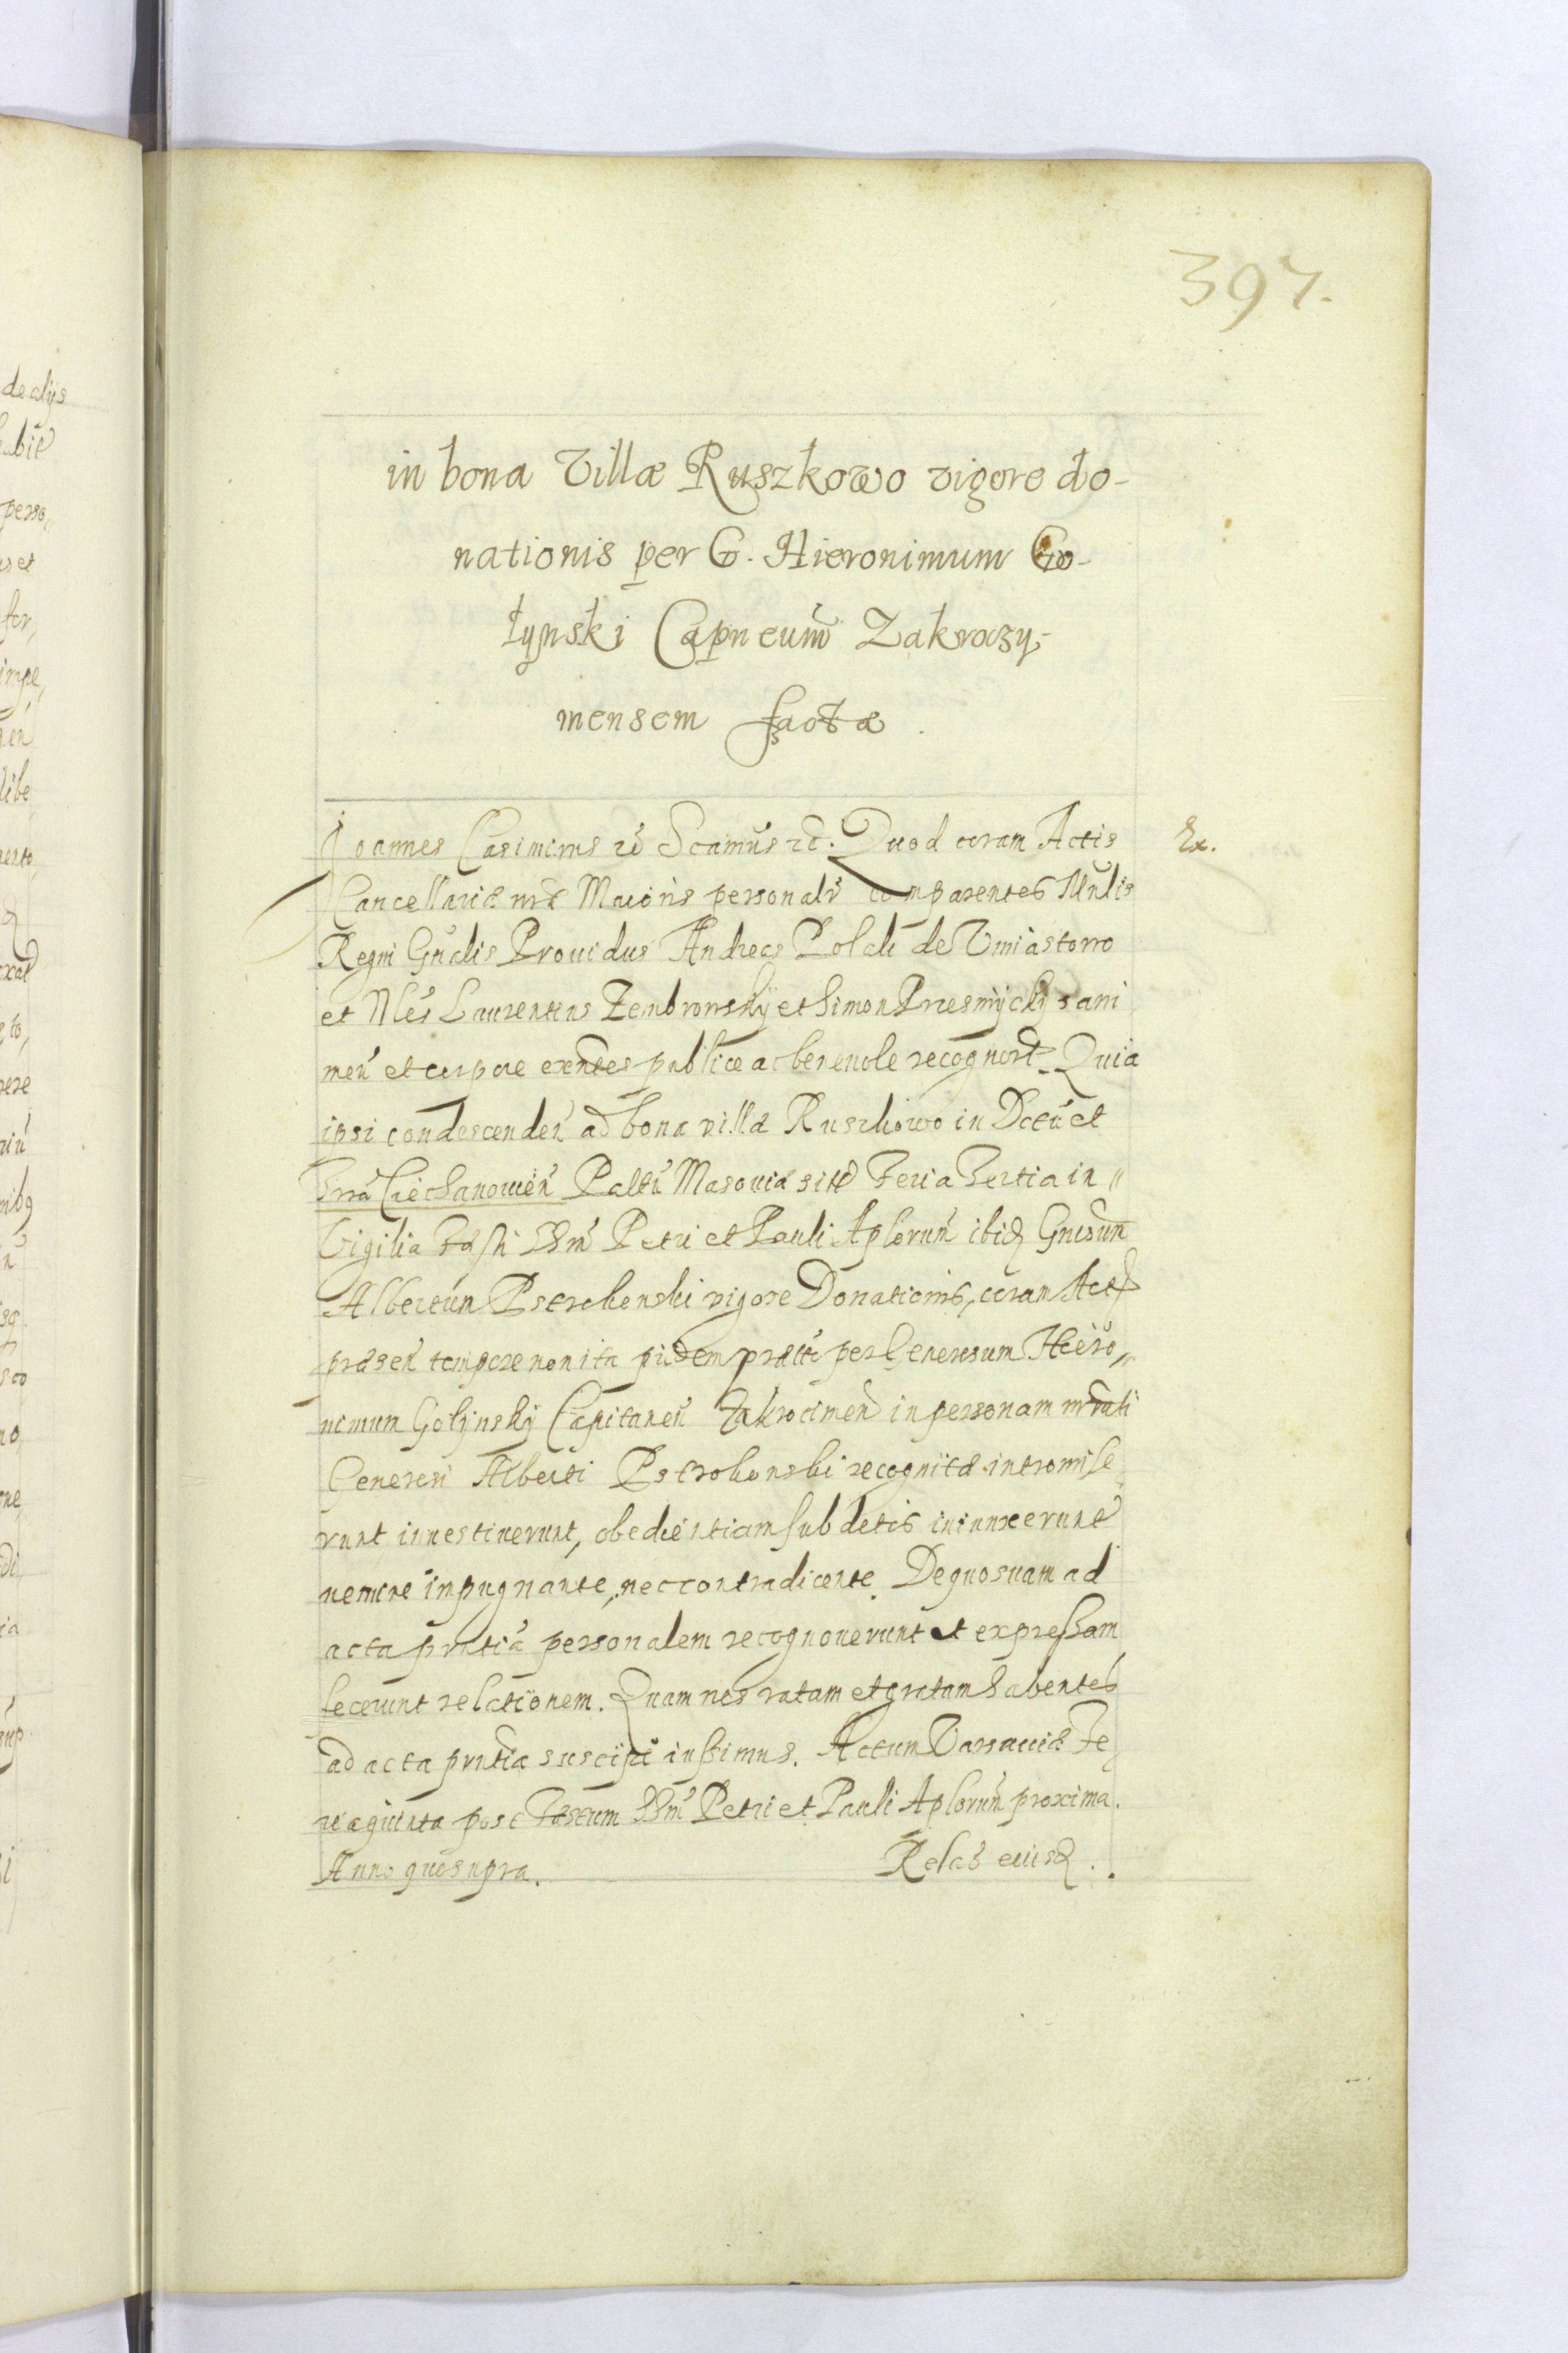 397.
in bona Villæ Ruszkowo vigore do-
nationis per G. Hieronimum Go-
łynski Capneum Zakroczy-
mensem factæ.
Joannes Casimirus etc Scamus etc. Quod coram Actis
Ex.
Cancellariæ nræ Maioris personalr comparentes Mnlis
Regni Gnalis Prouidus Andreas Polak de Vmiastowo
et Nles Laurentius Zembrowskÿ et Simon Przesmÿckÿ sani
men et corpore exntes publice ac beneuole recognort. Quia
ipsi condescenden ad bona villæ Ruszkowo in Dctu et
Trra Ciechanouien Paltu Masouiæ sitt Feria Tertia in
Vigilia Festi SSm Petri et Pauli Aplorum ibid Gnosum
Albertum Pstrokonski vigore Donationis, coram Act
præsen tempore non ita pridem per Generosum Hiero„
nimum Golÿnskÿ Capitaneu Zakrocimen in personam
Generosi Alberti Pstrokonski recognitæ intromise
runt, inuestiuerunt, obedientiam subdctis iniunxerunt
nemine impugnante, nec contradicente. De quo suam ad
acta prntia personalem recognouerunt et expressam
fecerunt relationem. Quam nos ratam et gratam habentes
ad acta prntia suscipi iussimus. Actum Varsauiæ Fe
ria quinta post Festum SSm Petri et Pauli Aplorum proxima.
Anno quo supra. Relas eiusd.
de alÿs
perso„